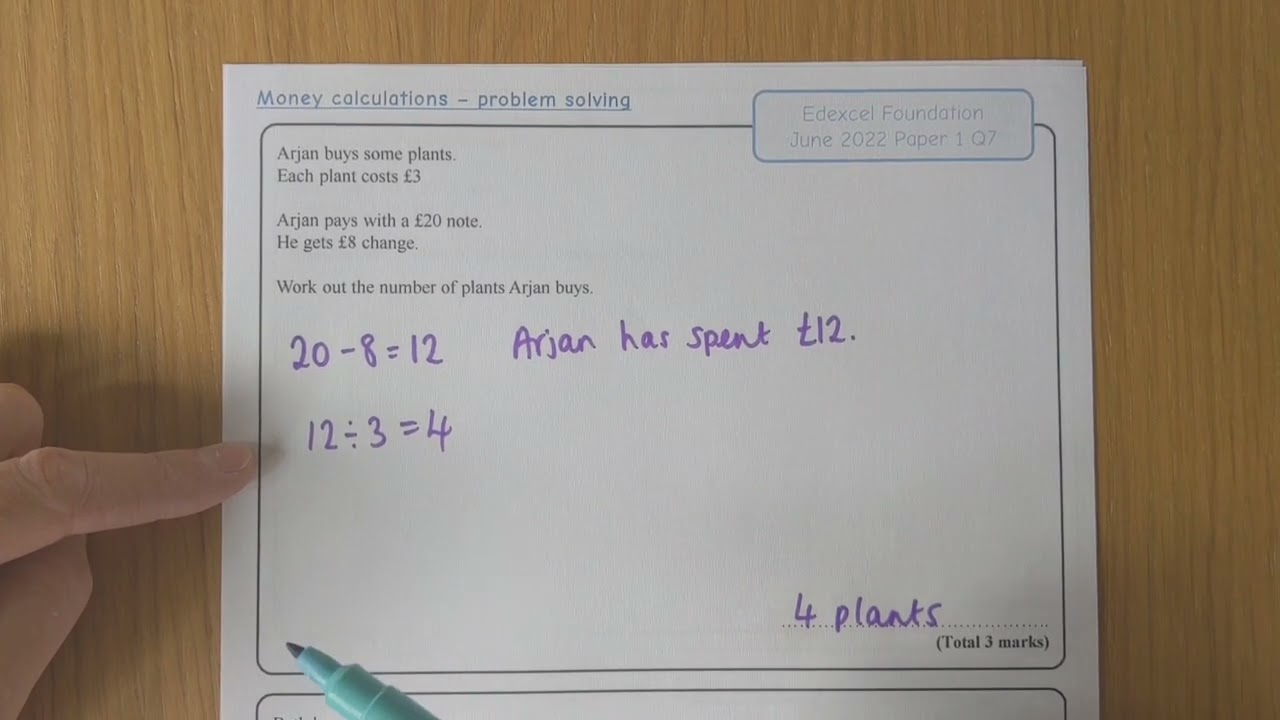 Money calculations – problem solving
Edexcel Foundation
June 2022 Paper 1 Q7
Arjan buys some plants.
Each plant costs £3
Arjan pays with a £20 note.
He gets £8 change.
Work out the number of plants Arjan buys.
20 - 8 = 12 Arjan has spent £12.
12 ÷ 3 = 4
4 plants
(Total 3 marks)